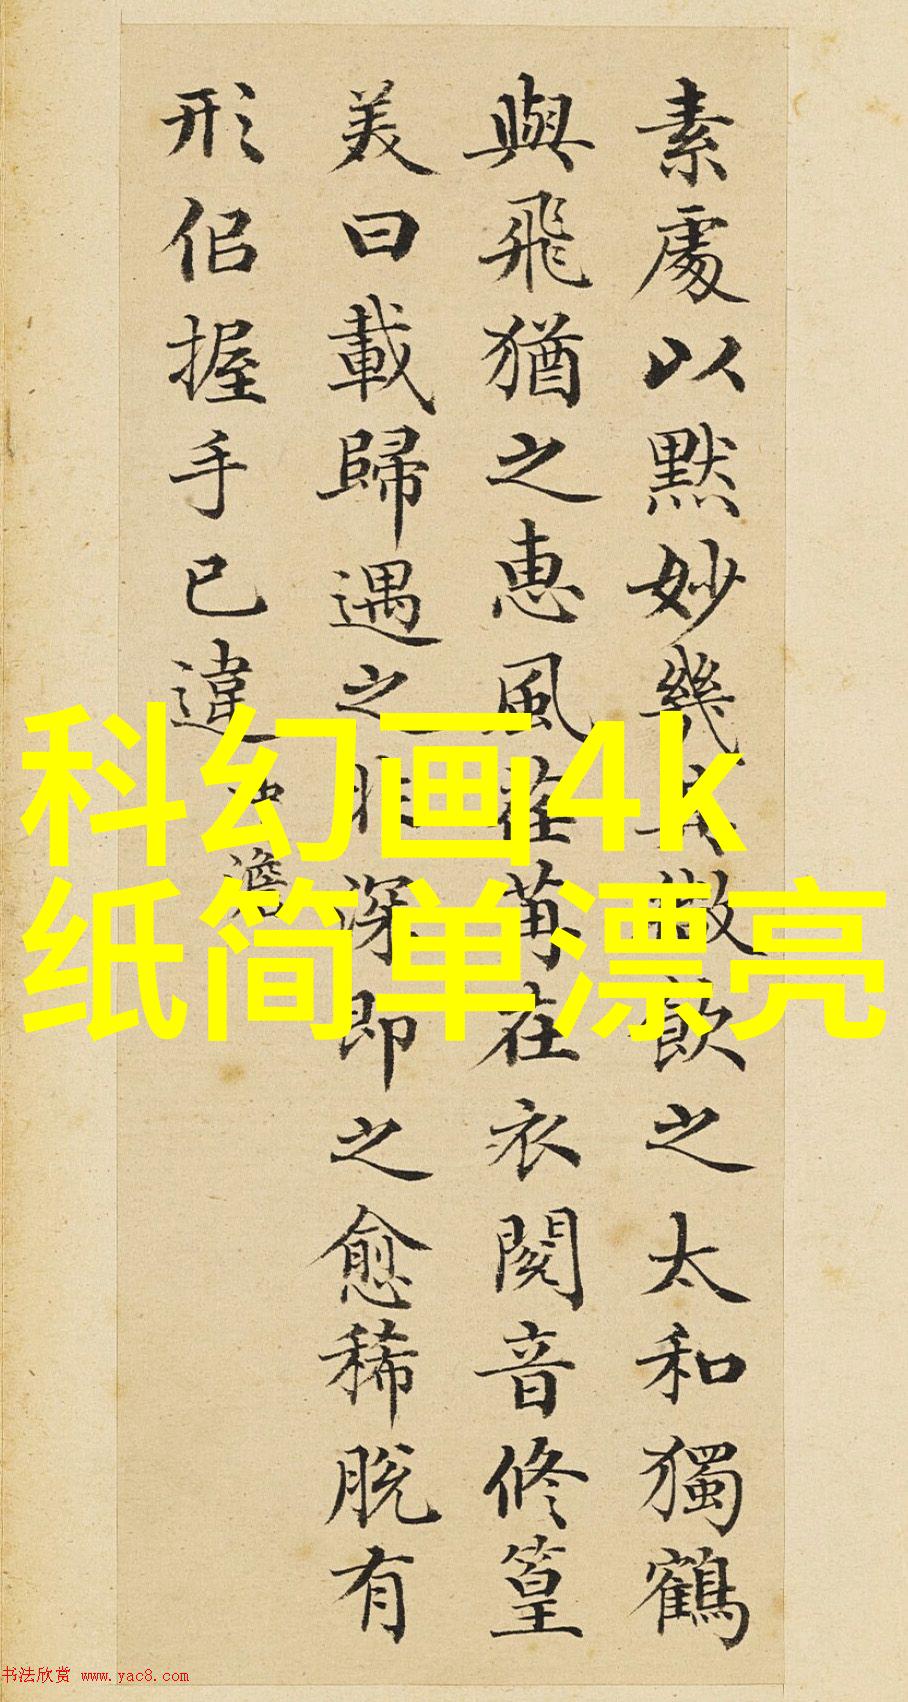 素處以默妙幾其微飲之太和獨鶴
與飛猶之惠風荏苒在衣閱音修篁
美曰載歸遇之非深即之愈稀脫有
形佀握手已違
沖澹
科幻画4k
纸简单漂亮
书法欣赏 www.yac8.com